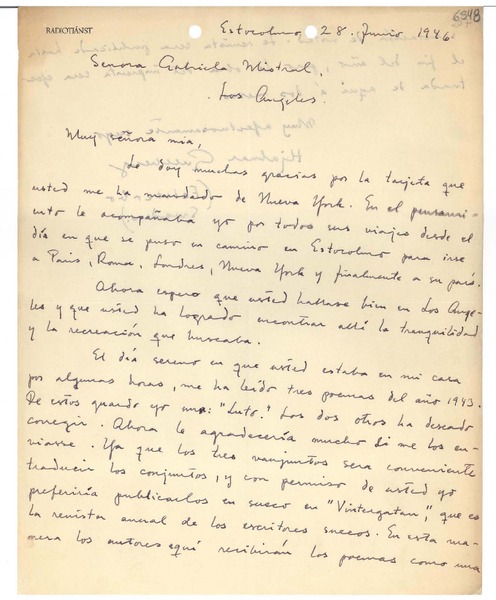 6948
RADIOTJÄNST
Estocolmo 28. Junio 1946
Señora Gabriela Mistral,
Los Angeles.
Muy señora mia,
Le doy muchas gracias por la tarjeta que
usted me ha mandado de Nueva York. En el pensami-
ento le acompañaba yo por todos sus viajes desde el
dia en que se puso en camino en Estocolmo para irse
a Paris, Roma, Londres, Nueva York y finalmente a su pais.
Ahora espero que usted hallase bien en Los Ange-
les y que usted ha logrado encontrar allá la tranquilidad
y la recreación que buscaba.
El dia sereno en que usted estaba en mi casa
por algunas horas, me ha leido tres poemas del año 1943.
De estos guardo yo uno: "Luto." Los dos otros ha deseado
corregir. Ahora le agradecería mucho si me los en-
viasse. Ya que los tres vanjuntos sera conveniente
traducir los conjuntos, y con permiso de usted yo
preferiría publicarlos en sueco en "Vintergatan," que es
la revista anual de los escritores suecos. En esta ma-
nera los autores aquí recibirán los poemas como una